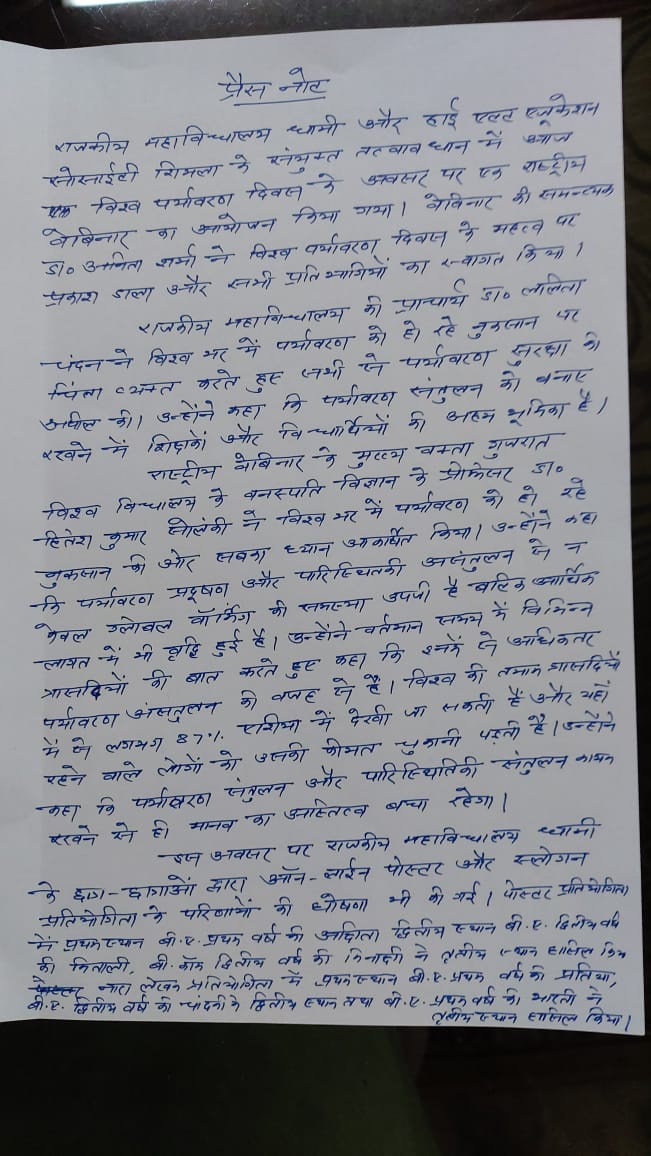 प्रैस नोट
राजकीय महाविद्यालय धामी और हाई एल्ट एजूकेशन
सोसाईटी शिमला के संयुक्त तत्वावधान में आज
एक विश्व पर्यावरण दिवस के अवसर पर एक राष्ट्रीय
वेबिनार का आयोजन किया गया। वेबिनार की समन्व्यक
डा० अनिता शर्मा ने विश्व पर्यावरण दिवस के महत्व पर
प्रकाश डाला और सभी प्रतिभागियों का स्वागत किया।
राजकीय महाविद्यालय की प्राचार्य डा० ललिता
चंदन ने विश्व भर में पर्यावरण को हो रहे नुकसान पर
चिंता व्यक्त करते हुए सभी से पर्यावरण सुरक्षा की
अपील की। उन्होंने कहा कि पर्यावरण संतुलन को बनाए
रखने में शिक्षकों और विद्यार्थियों की अहम भूमिका है।
राष्ट्रीय वेबिनार के मुख्य वक्ता गुजरात
विश्व विद्यालय के वनस्पति विज्ञान के प्रोफेसर डा०
हितेश कुमार सोलंकी ने विश्व भर में पर्यावरण को हो रहे
नुकसान की ओर सबका ध्यान आकर्षित किया। उन्होंने कहा
कि पर्यावरण प्रदूषण और पारिस्थितकी असंतुलन से न
केवल ग्लोबल वॉर्मिंग की समस्या उपजी है बल्कि आर्थिक
लागत में भी वृद्धि हुई है। उन्होंने वर्तमान समय में विभिन्न
त्रासदियों की बात करते हुए कहा कि इनमें से अधिकतर
पर्यावरण अंसतुलन की वजह से हैं। विश्व की तमाम त्रासदियों
में से लगभग 87% एशिया में देखी जा सकती हैं और यहाँ
रहने वाले लोगों को उसकी कीमत चुकानी पड़ती है। उन्होंने
कहा कि पर्यावरण संतुलन और पारिस्थितिकी संतुलन कायम
रखने से ही मानव का अस्तित्व बचा रहेगा।
इस अवसर पर राजकीय महाविद्यालय धामी
के छात्र-छात्राओं द्वारा ऑन-लाईन पोस्टर और स्लोगन
प्रतियोगिता के परिणामों की घोषणा भी की गई। पोस्टर प्रतियोगिता
में प्रथम स्थान बी.ए. प्रथम वर्ष की अक्षिता द्वितीय स्थान बी.ए. द्वितीय वर्ष
की मिताली, बी.कॉम द्वितीय वर्ष की मिनाक्षी ने तृतीय स्थान हासिल किया
नारा लेखन प्रतियोगिता में प्रथम स्थान बी.ए. प्रथम वर्ष की प्रतिभा,
बी.ए. द्वितीय वर्ष की चांदनी ने द्वितीय स्थान तथा बी.ए. प्रथम वर्ष की भारती ने
तृतीय स्थान हासिल किया।